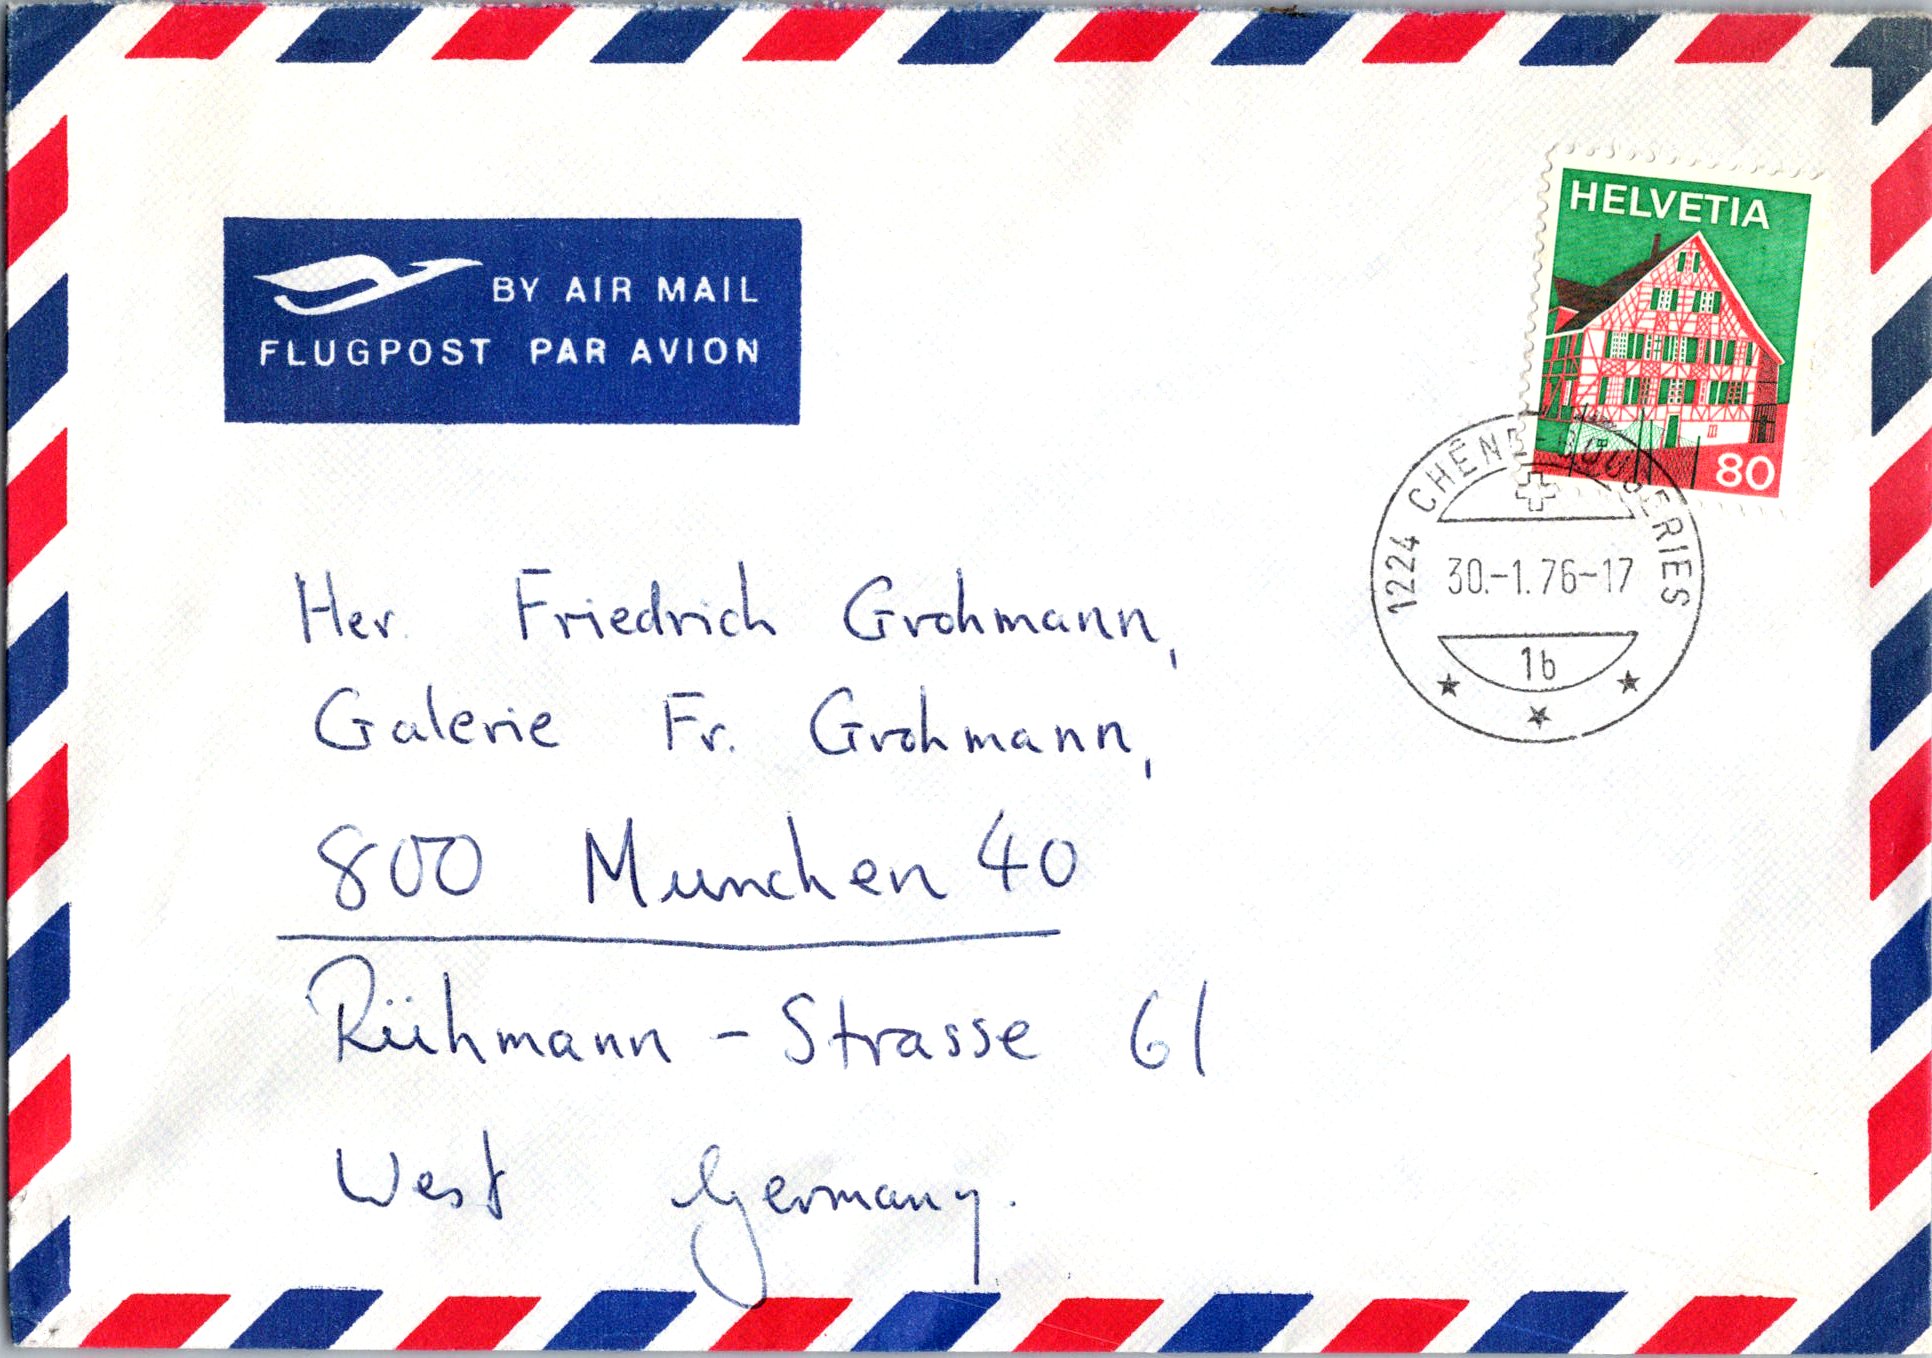 BY AIR MAIL
FLUGPOST PAR AVION
HELVETIA
80
1224 CHÊNE-BOUGERIES
30.-1.76-17
1b
Her. Friedrich Grohmann,
Galerie Fr. Grohmann,
800 Munchen 40
Rühmann - Strasse 61
West Germany.